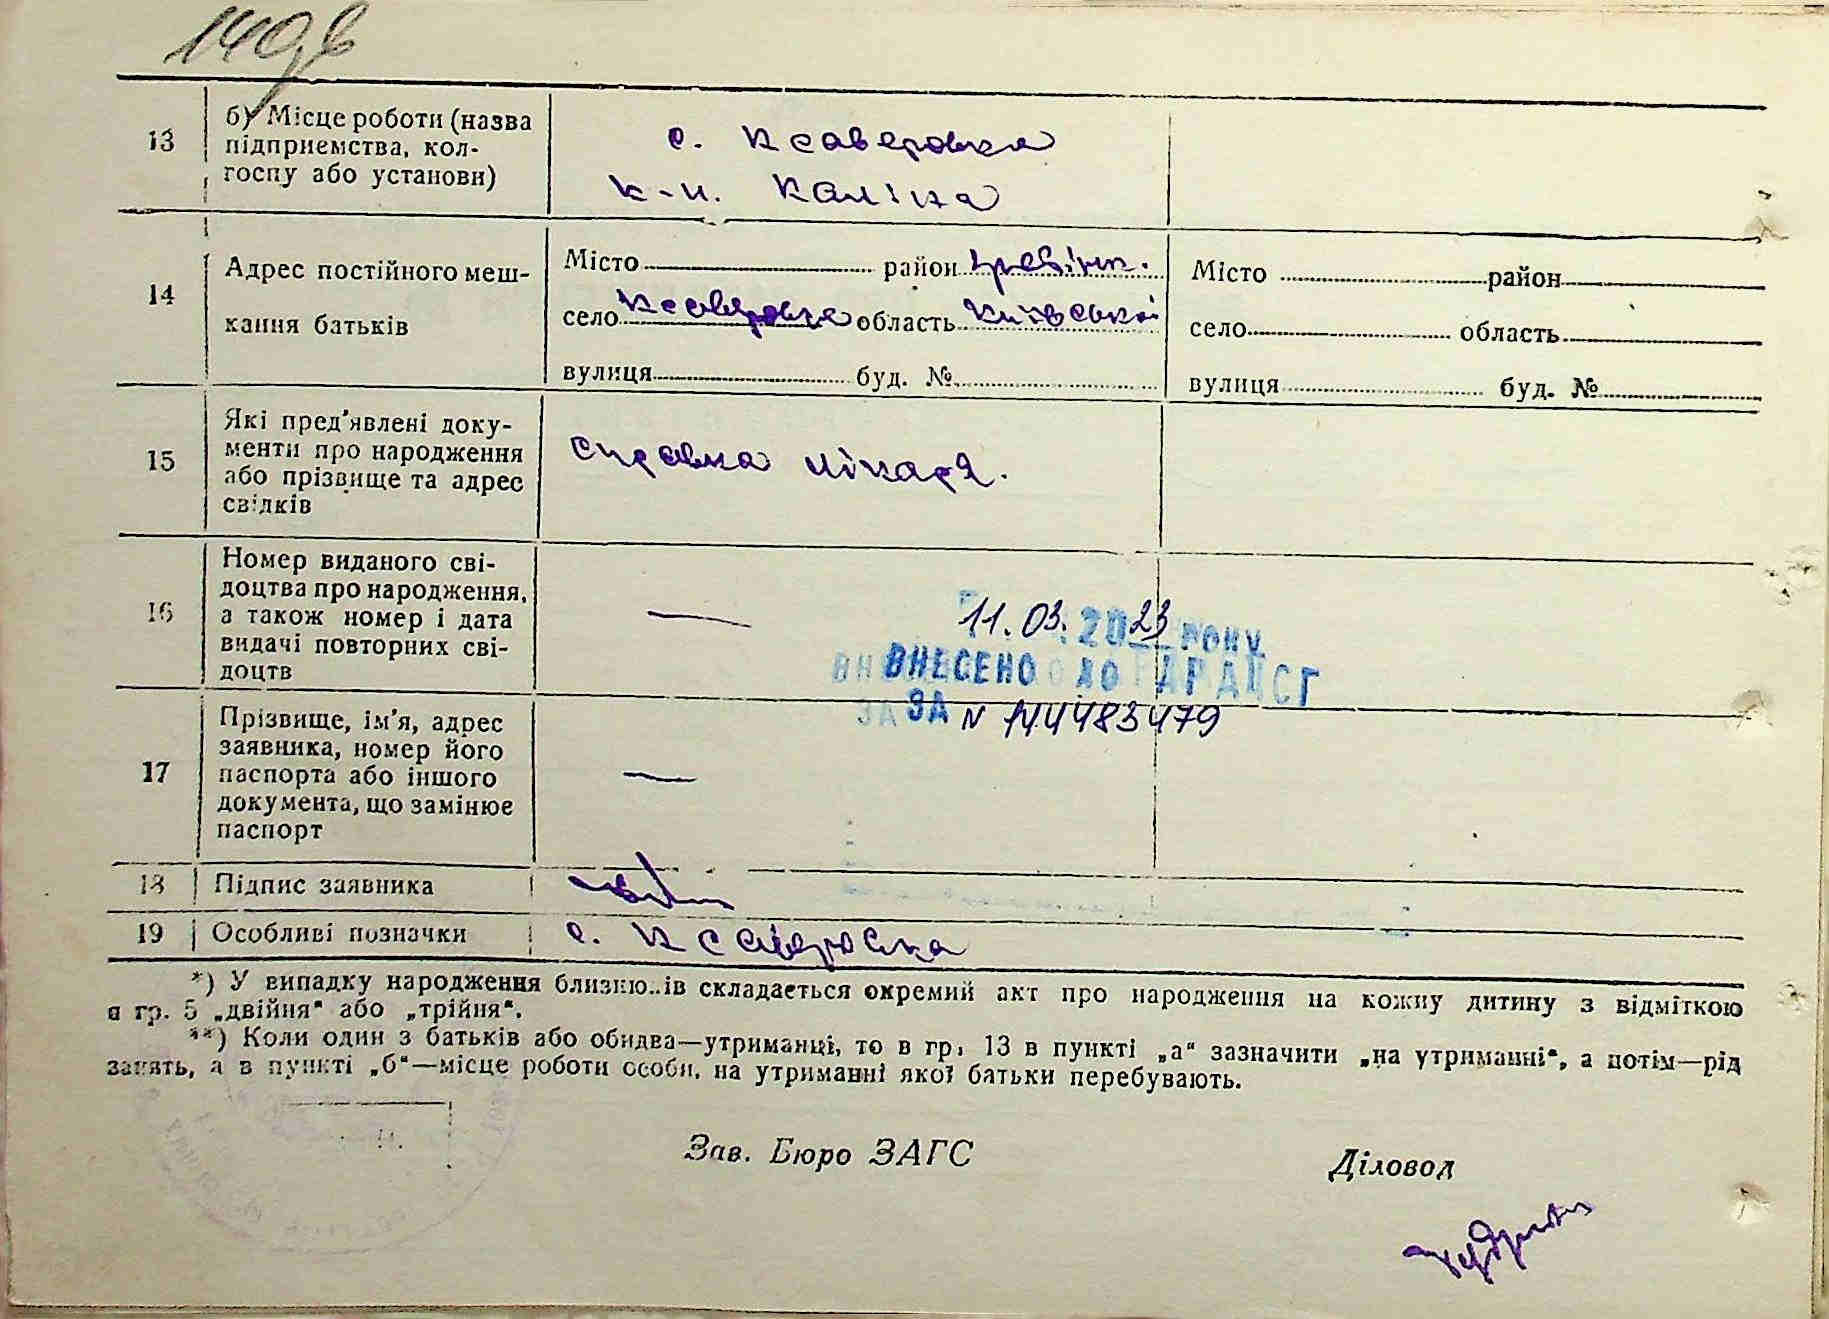 13
б) Місце роботи (назва
підприємства, кол-
госпу або установи)
с. Ксаверовка
к-п. Калініна
14
Адрес постійного меш-
кання батьків
Місто район Гребінк.
село Ксаверовка область Київської
вулиця буд. №
Місто район
село область
вулиця буд. №
15
Які пред'явлені доку-
менти про народження
або прізвище та адрес
свідків
справка лікаря.
16
Номер виданого сві-
доцтва про народження,
а також номер і дата
видачі повторних сві-
доцтв
—
11.03.2023 РОКУ
ВНЕСЕНО ДО ДРАЦСГ
ЗА N 144483479
17
Прізвище, ім'я, адрес
заявника, номер його
паспорта або іншого
документа, що замінює
паспорт
—
18 Підпис заявника
19 Особливі позначки с. Ксаверовка
*) У випадку народження близню..ів складається окремий акт про народження на кожну дитину з відміткою
в гр. 5 „двійня“ або „трійня“.
**) Коли один з батьків або обидва—утриманці, то в гр. 13 в пункті „а“ зазначити „на утриманні“, а потім—рід
занять, а в пункті „б“—місце роботи особи, на утриманні якої батьки перебувають.
Зав. Бюро ЗАГС
Діловод